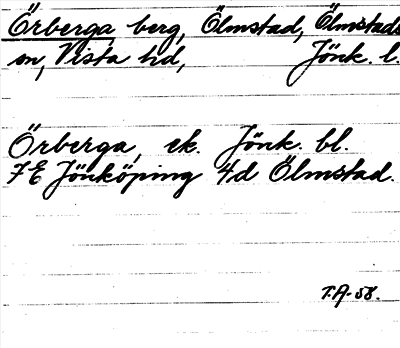 Örberga berg, Ölmstad, Ölmstads
sn, Vista hd, Jönk. l.
Örberga, ek. Jönk. bl.
7E Jönköping 4d Ölmstad.
T.A. 58.